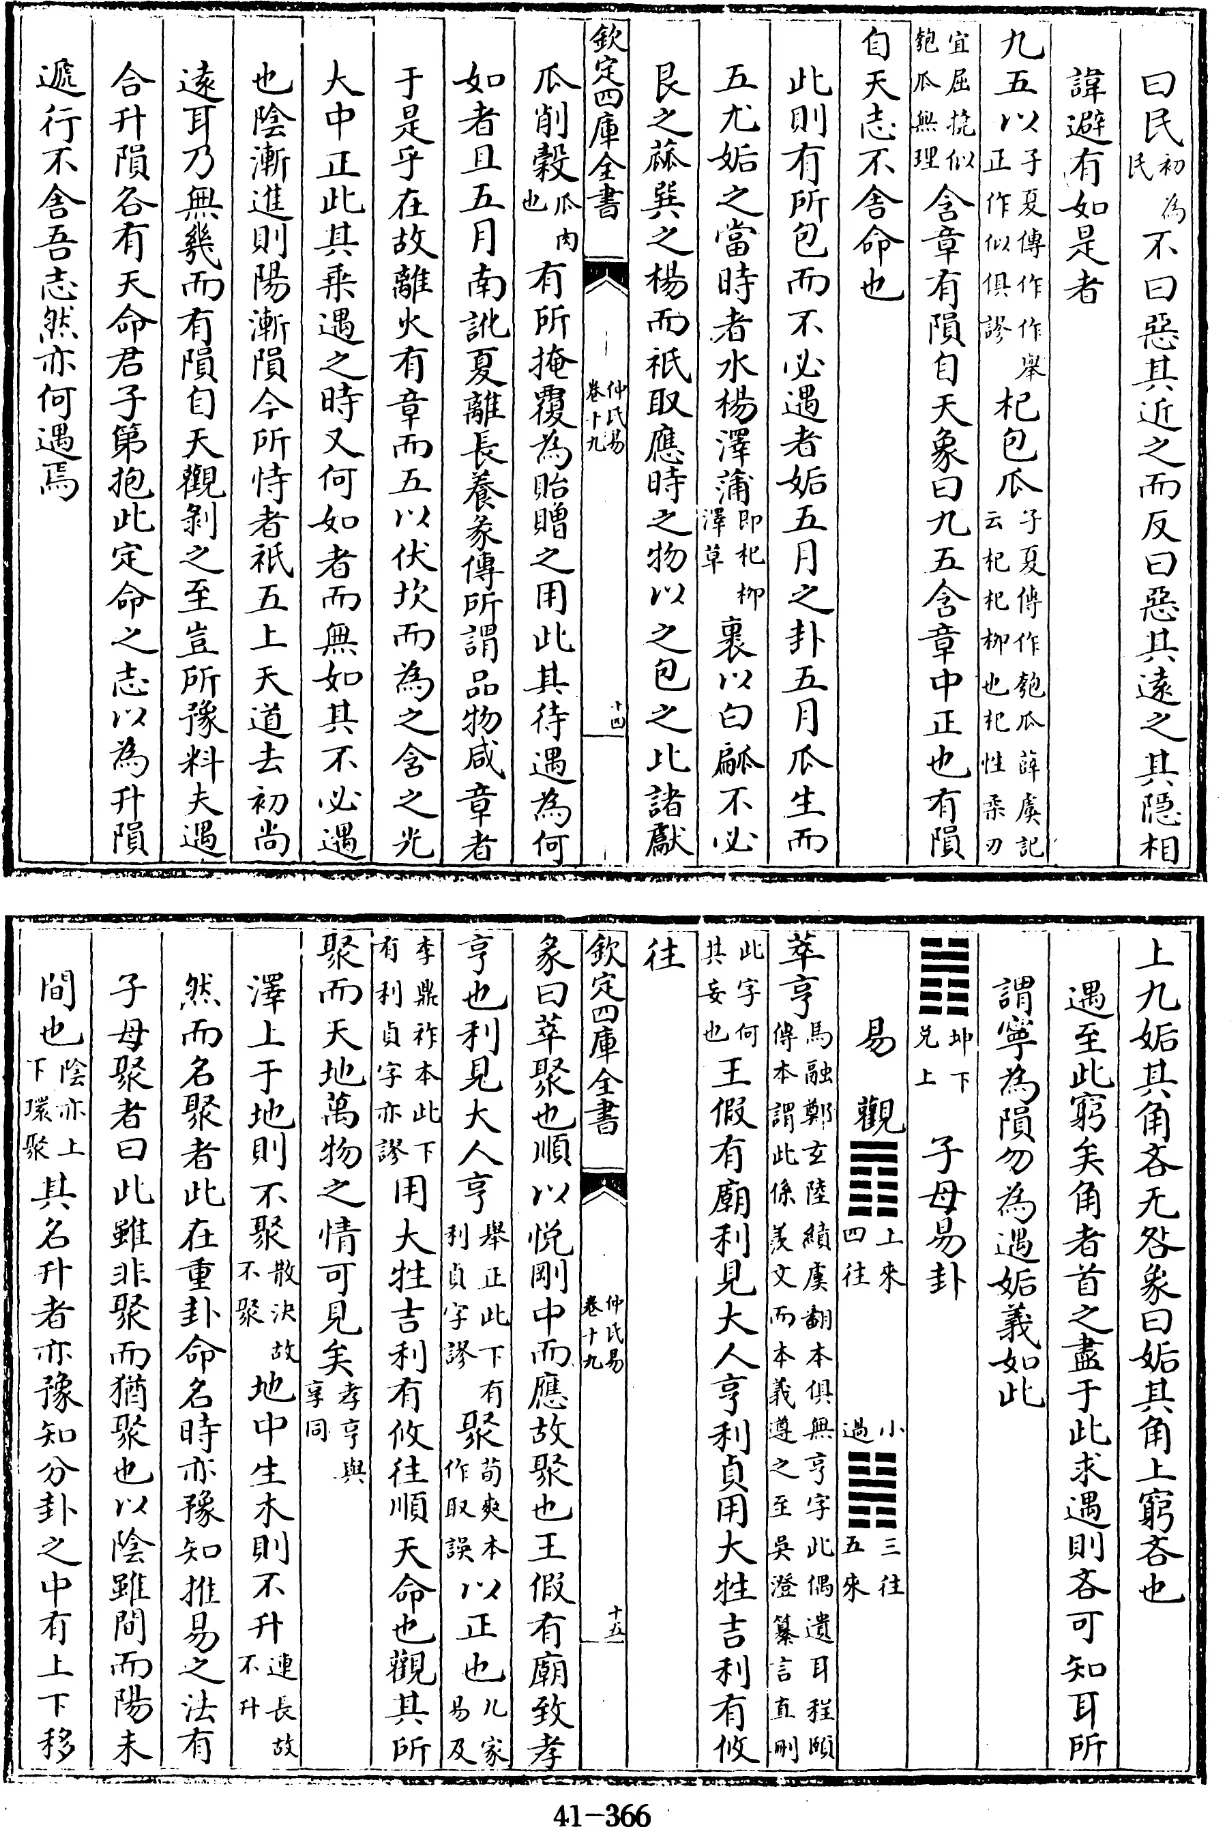 曰民初為民不曰惡其近之而反曰惡其遠之其隱相
諱避有如是者
九五以子夏傳作作舉正作似俱謬杞包瓜子夏傳作匏瓜薛虞記云杞杞柳也杞性柔刃
宜屈撓似匏瓜無理含章有隕自天象曰九五含章中正也有隕
自天志不舍命也
此則有所包而不必遇者姤五月之卦五月瓜生而
五尤姤之當時者水楊澤蒲即杞柳澤草裹以白瓠不必
艮之蓏巽之楊而祇取應時之物以之包之比諸獻
欽定四庫全書
仲氏易
卷十九
十四
瓜削縠瓜肉也有所掩覆為貽贈之用此其待遇為何
如者且五月南訛夏離長養彖傳所謂品物咸章者
于是乎在故離火有章而五以伏坎而為之含之光
大中正此其乘遇之時又何如者而無如其不必遇
也陰漸進則陽漸隕今所恃者祇五上天道去初尚
遠耳乃無幾而有隕自天觀剝之至豈所豫料夫遇
合升隕各有天命君子第抱此定命之志以為升隕
遞行不舍吾志然亦何遇焉
上九姤其角吝无咎象曰姤其角上窮吝也
遇至此窮矣角者首之盡于此求遇則吝可知耳所
謂寧為隕勿為遇姤義如此
坤下兌上 子母易卦
易 觀上來四往 小過三往五來
萃亨馬融鄭玄陸績虞翻本俱無亨字此偶遺耳程頤傳本謂此係羨文而本義遵之至吳澄纂言直刪
此字何其妄也王假有廟利見大人亨利貞用大牲吉利有攸
往
欽定四庫全書
仲氏易
卷十九
十五
彖曰萃聚也順以悅剛中而應故聚也王假有廟致孝
亨也利見大人亨舉正此下有利貞字謬聚荀爽本作取誤以正也九家易及
李鼎祚本此下有利貞字亦謬用大牲吉利有攸往順天命也觀其所
聚而天地萬物之情可見矣孝亨與享同
澤上于地則不聚散決故不聚地中生木則不升連長故不升
然而名聚者此在重卦命名時亦豫知推易之法有
子母聚者曰此雖非聚而猶聚也以陰雖間而陽未
間也陰亦上下環聚其名升者亦豫知分卦之中有上下移
41-366